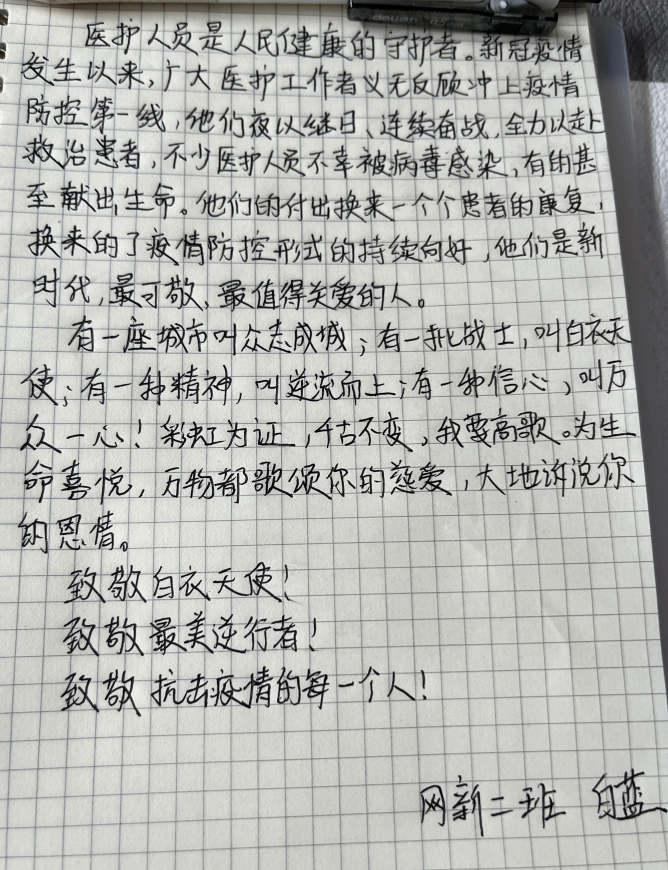 医护人员是人民健康的守护者。新冠疫情
发生以来，广大医护工作者义无反顾冲上疫情
防控第一线，他们夜以继日、连续奋战，全力以赴
救治患者，不少医护人员不幸被病毒感染，有的甚
至献出生命。他们的付出换来一个个患者的康复，
换来的了疫情防控形式的持续向好，他们是新
时代，最可敬、最值得关爱的人。
有一座城市叫众志成城；有一批战士，叫白衣天
使；有一种精神，叫逆流而上；有一种信心，叫万
众一心！彩虹为证，千古不变，我要高歌。为生
命喜悦，万物都歌颂你的慈爱，大地诉说你
的恩情。
致敬白衣天使！
致敬最美逆行者！
致敬抗击疫情的每一个人！
网新二班 白蓝